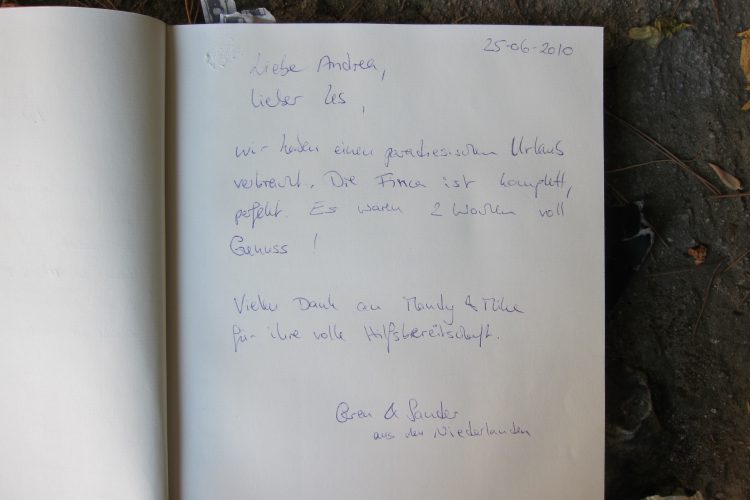 25-06-2010
Liebe Andrea,
Lieber Les,
wir haben einen paradiesischen Urlaub
verbracht. Die Finca ist komplett,
perfekt. Es waren 2 Wochen voll
Genuss!
Vielen Dank an Mandy & Mike
für ihre volle Hilfsbereitschaft.
& Sander
aus den Niederlanden